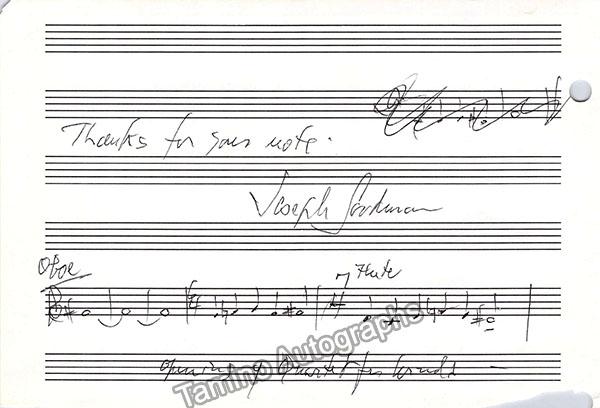 Thanks for your note.
Joseph Goodman
Oboe
Flute
Opening of Quartet for Winds
Tamino Autographs